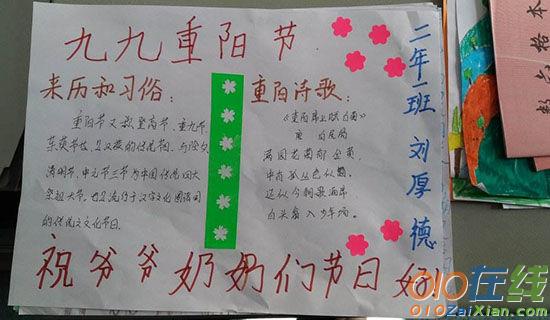 九九重阳节
来历和习俗：
重阳节又称登高节、重九节、
茱萸节, 是汉族的传统节日, 与除夕、
清明节、中元节三节为中国传统四大
祭祖大节。也是流行于汉字文化圈诸国
的传统文化节日。
重阳诗歌：
唐 白居易
满园花菊郁金黄，
中有孤丛色似霜。
还从今朝歌酒席
白头翁入少年场。
二年一班 刘厚德
祝爷爷奶奶们节日好
数学格本
010在线
010ZaiXian.com